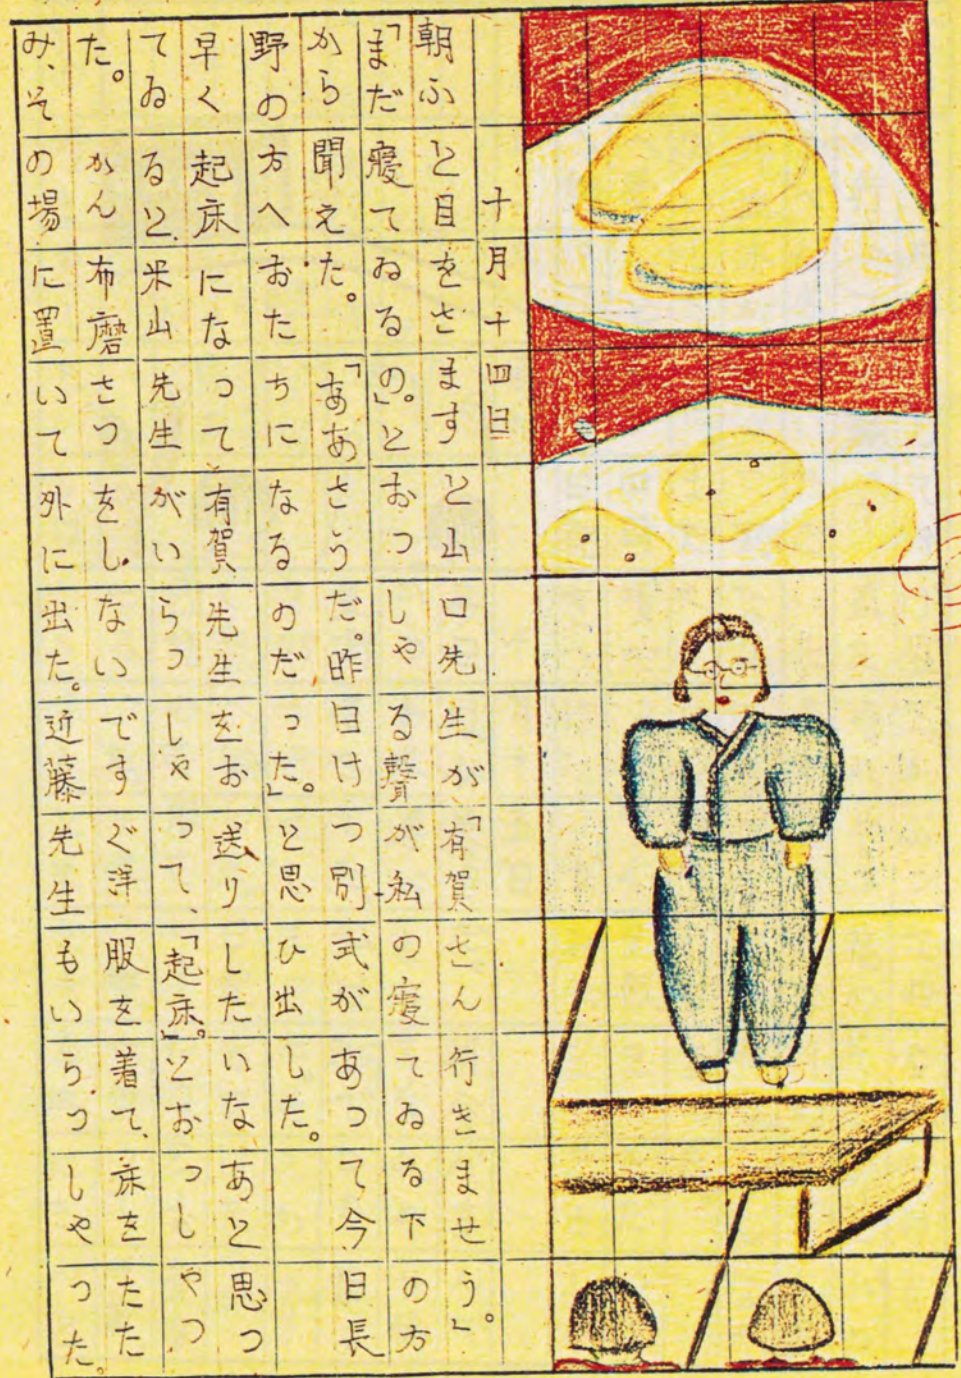 十月十四日
朝ふと目をさますと山口先生が「有賀さん行きませう。」
「まだ寝てゐるの。」とおつしやる聲が私の寝てゐる下の方
から聞えた。「ああさうだ。昨日けつ別式があつて今日長
野の方へおたちになるのだつた。」と思ひ出した。
早く起床になつて有賀先生をお送りしたいなあと思つ
てゐると米山先生がいらつしやつて、「起床。」とおつしやつ
た。かん布磨さつをしないですぐ洋服を着て、床をたた
み、その場に置いて外に出た。近藤先生もいらつしやつた。